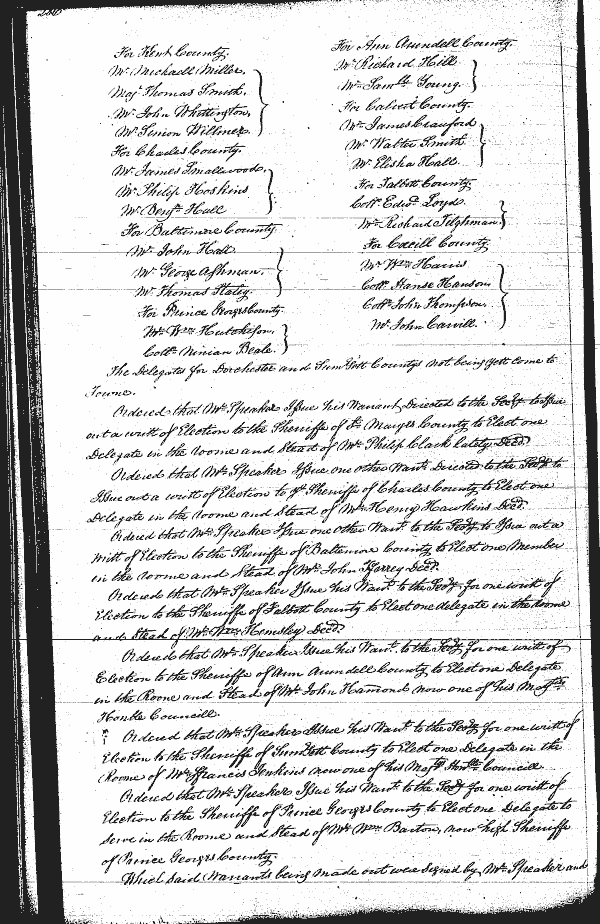 For Kent County.
Mr Michaell Miller.
Majr Thomas Smith.
Mr John Whittington.
Mr Simon Willmer.
For Charles County.
Mr James Smallwood.
Mr Philip Hoskins
Mr Benja Hall
For Baltimore County
Mr John Hall.
Mr George Ashman.
Mr Thomas Staley.
For Prince Georges County.
Mr Wm Hutcheson.
Collo Ninian Beale.
For Ann Arundell County.
Mr Richard Hill
Mr Samll Young.
For Calvert County.
Mr James Crauford
Mr Walter Smith
Mr Elisha Hall.
For Talbott County
Collo Edwd Loyd.
Mr Richard Tilghman.
For Cecill County
Mr Wm Harris
Collo Hanse Hanson.
Collo John Thompson.
Mr John Carvill.
The Delegates for Dorchester and Sumsett Countys not being yett come to
Towne.
Ordered that Mr Speaker Issue his Warrant Directed to the Secry to Issue
out a writt of Election to the Sheriffe of St Marys County to Elect one
Delegate in the roome and Stead of Mr Philip Clark lately Decd.
Ordered that Mr Speaker Issue one other Wart Directed to the Secry to
Issue out a writt of Election to ye Sheriffe of Charles County to Elect one
Delegate in the roome and Stead of Mr Henry Hawkins Decd.
Ordered that Mr Speaker Issue one other Wart to the Secry to Issue out a
writt of Election to the Sheriffe of Baltimore County to Elect one Member
in the roome and Stead of Mr John Fferrey Decd.
Ordered that Mr Speaker Issue his Wart to the Secry for one writt of
Election to the Sheriffe of Talbott County to Elect one delegate in the roome
and Stead of Mr Wm Hemsley Decd.
Ordered that Mr Speaker Issue his Wart to the Secry for one writt of
Election to the Sheriffe of Ann Arundell County to Elect one Delegate
in the Roome and Stead of Mr John Hamond now one of his Majtys
Honble Councill.
Ordered that Mr Speaker Issue his Wart to the Secry for one writt of
Election to the Sheriffe of Sumsett County to Elect one Delegate in the
Roome of Mr Ffrancis Jenkins now one of his Majtys Honble Councill
Ordered that Mr Speaker Issue his Wart to the Secry for one writt of
Election to the Sheriffe of Prince Georges County to Elect one Delegate to
serve in the Roome and Stead of Mr Wm Barton, now high Sheriffe
of Prince Georges County.
Which said Warrants being made out were Signed by Mr Speaker and